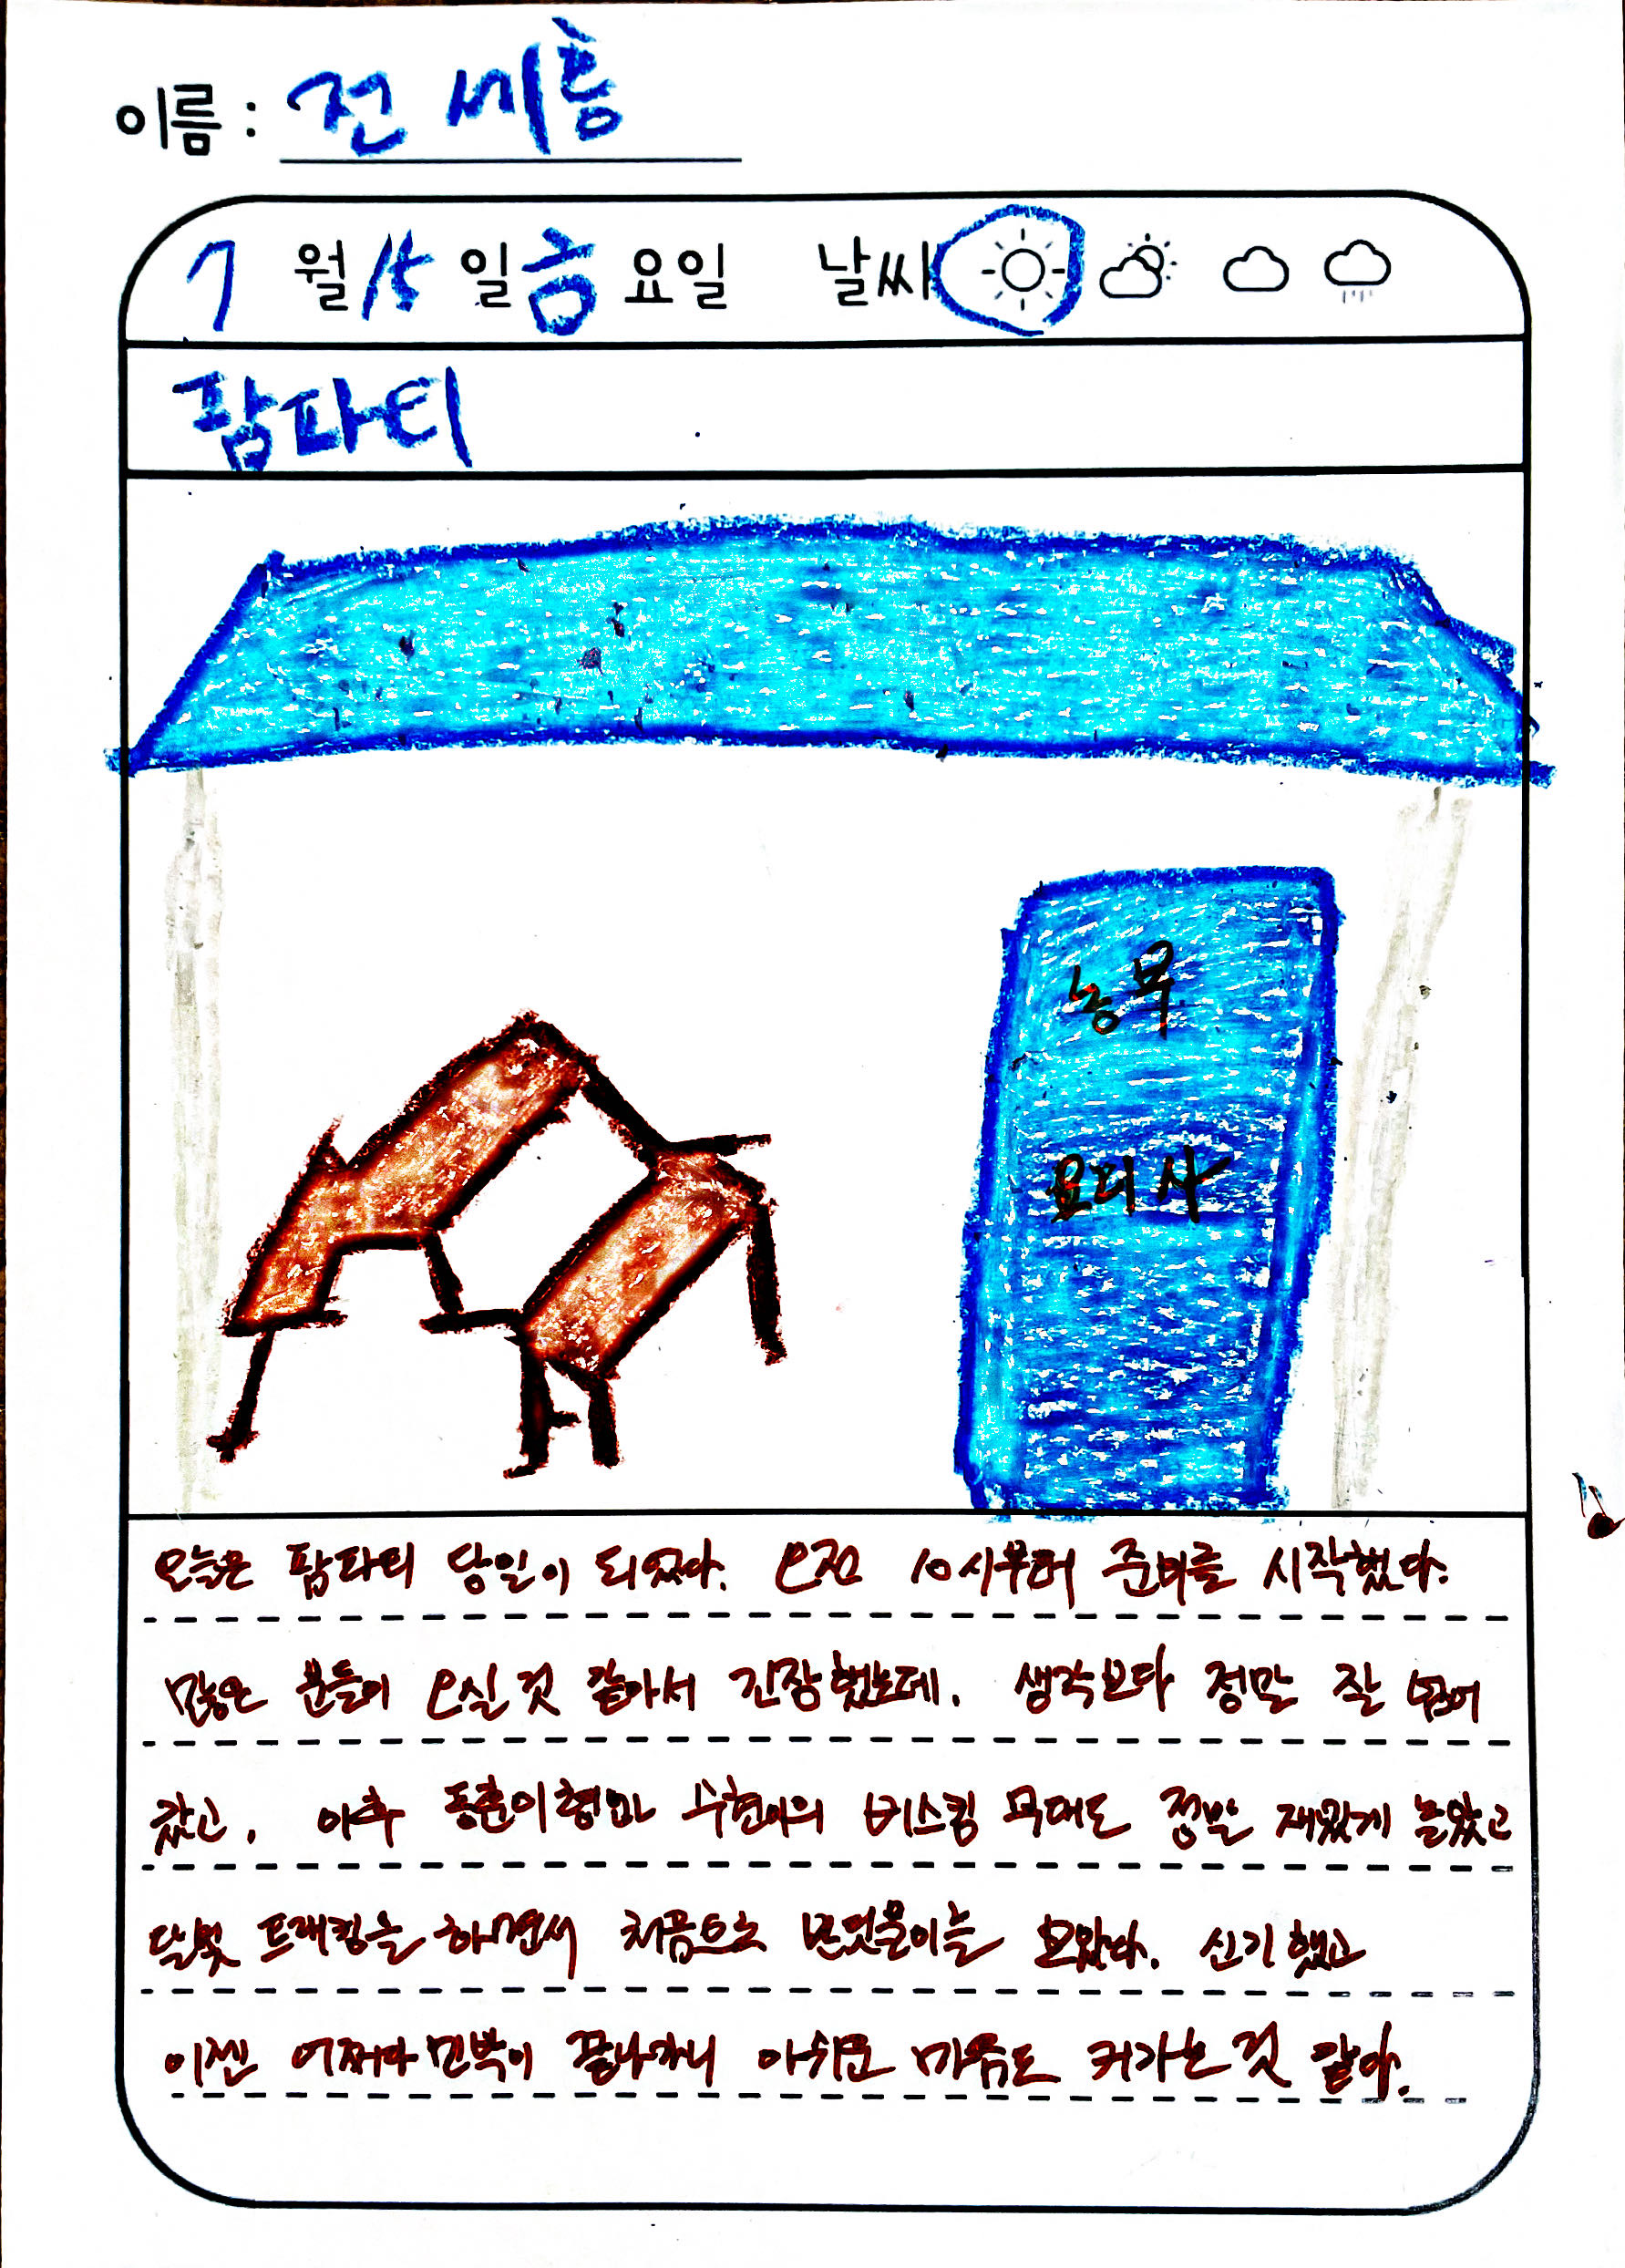 이름 : 전세흥
7월 15일 금요일 날씨
팜파티
농부
요리사
오늘은 팜파티 당일이 되었다. 오전 10시부터 준비를 시작했다.
많은 분들이 오실 것 같아서 긴장했는데, 생각보다 정말 잘 넘어
갔고, 이후 동훈이형과 수현이의 버스킹 무대도 정말 재밌게 놀았고
달빛 트래킹을 하면서 처음으로 반딧불이를 보았다. 신기했고
이젠 어쩌다 민박이 끝나가니 아쉬운 마음도 커가는 것 같다.